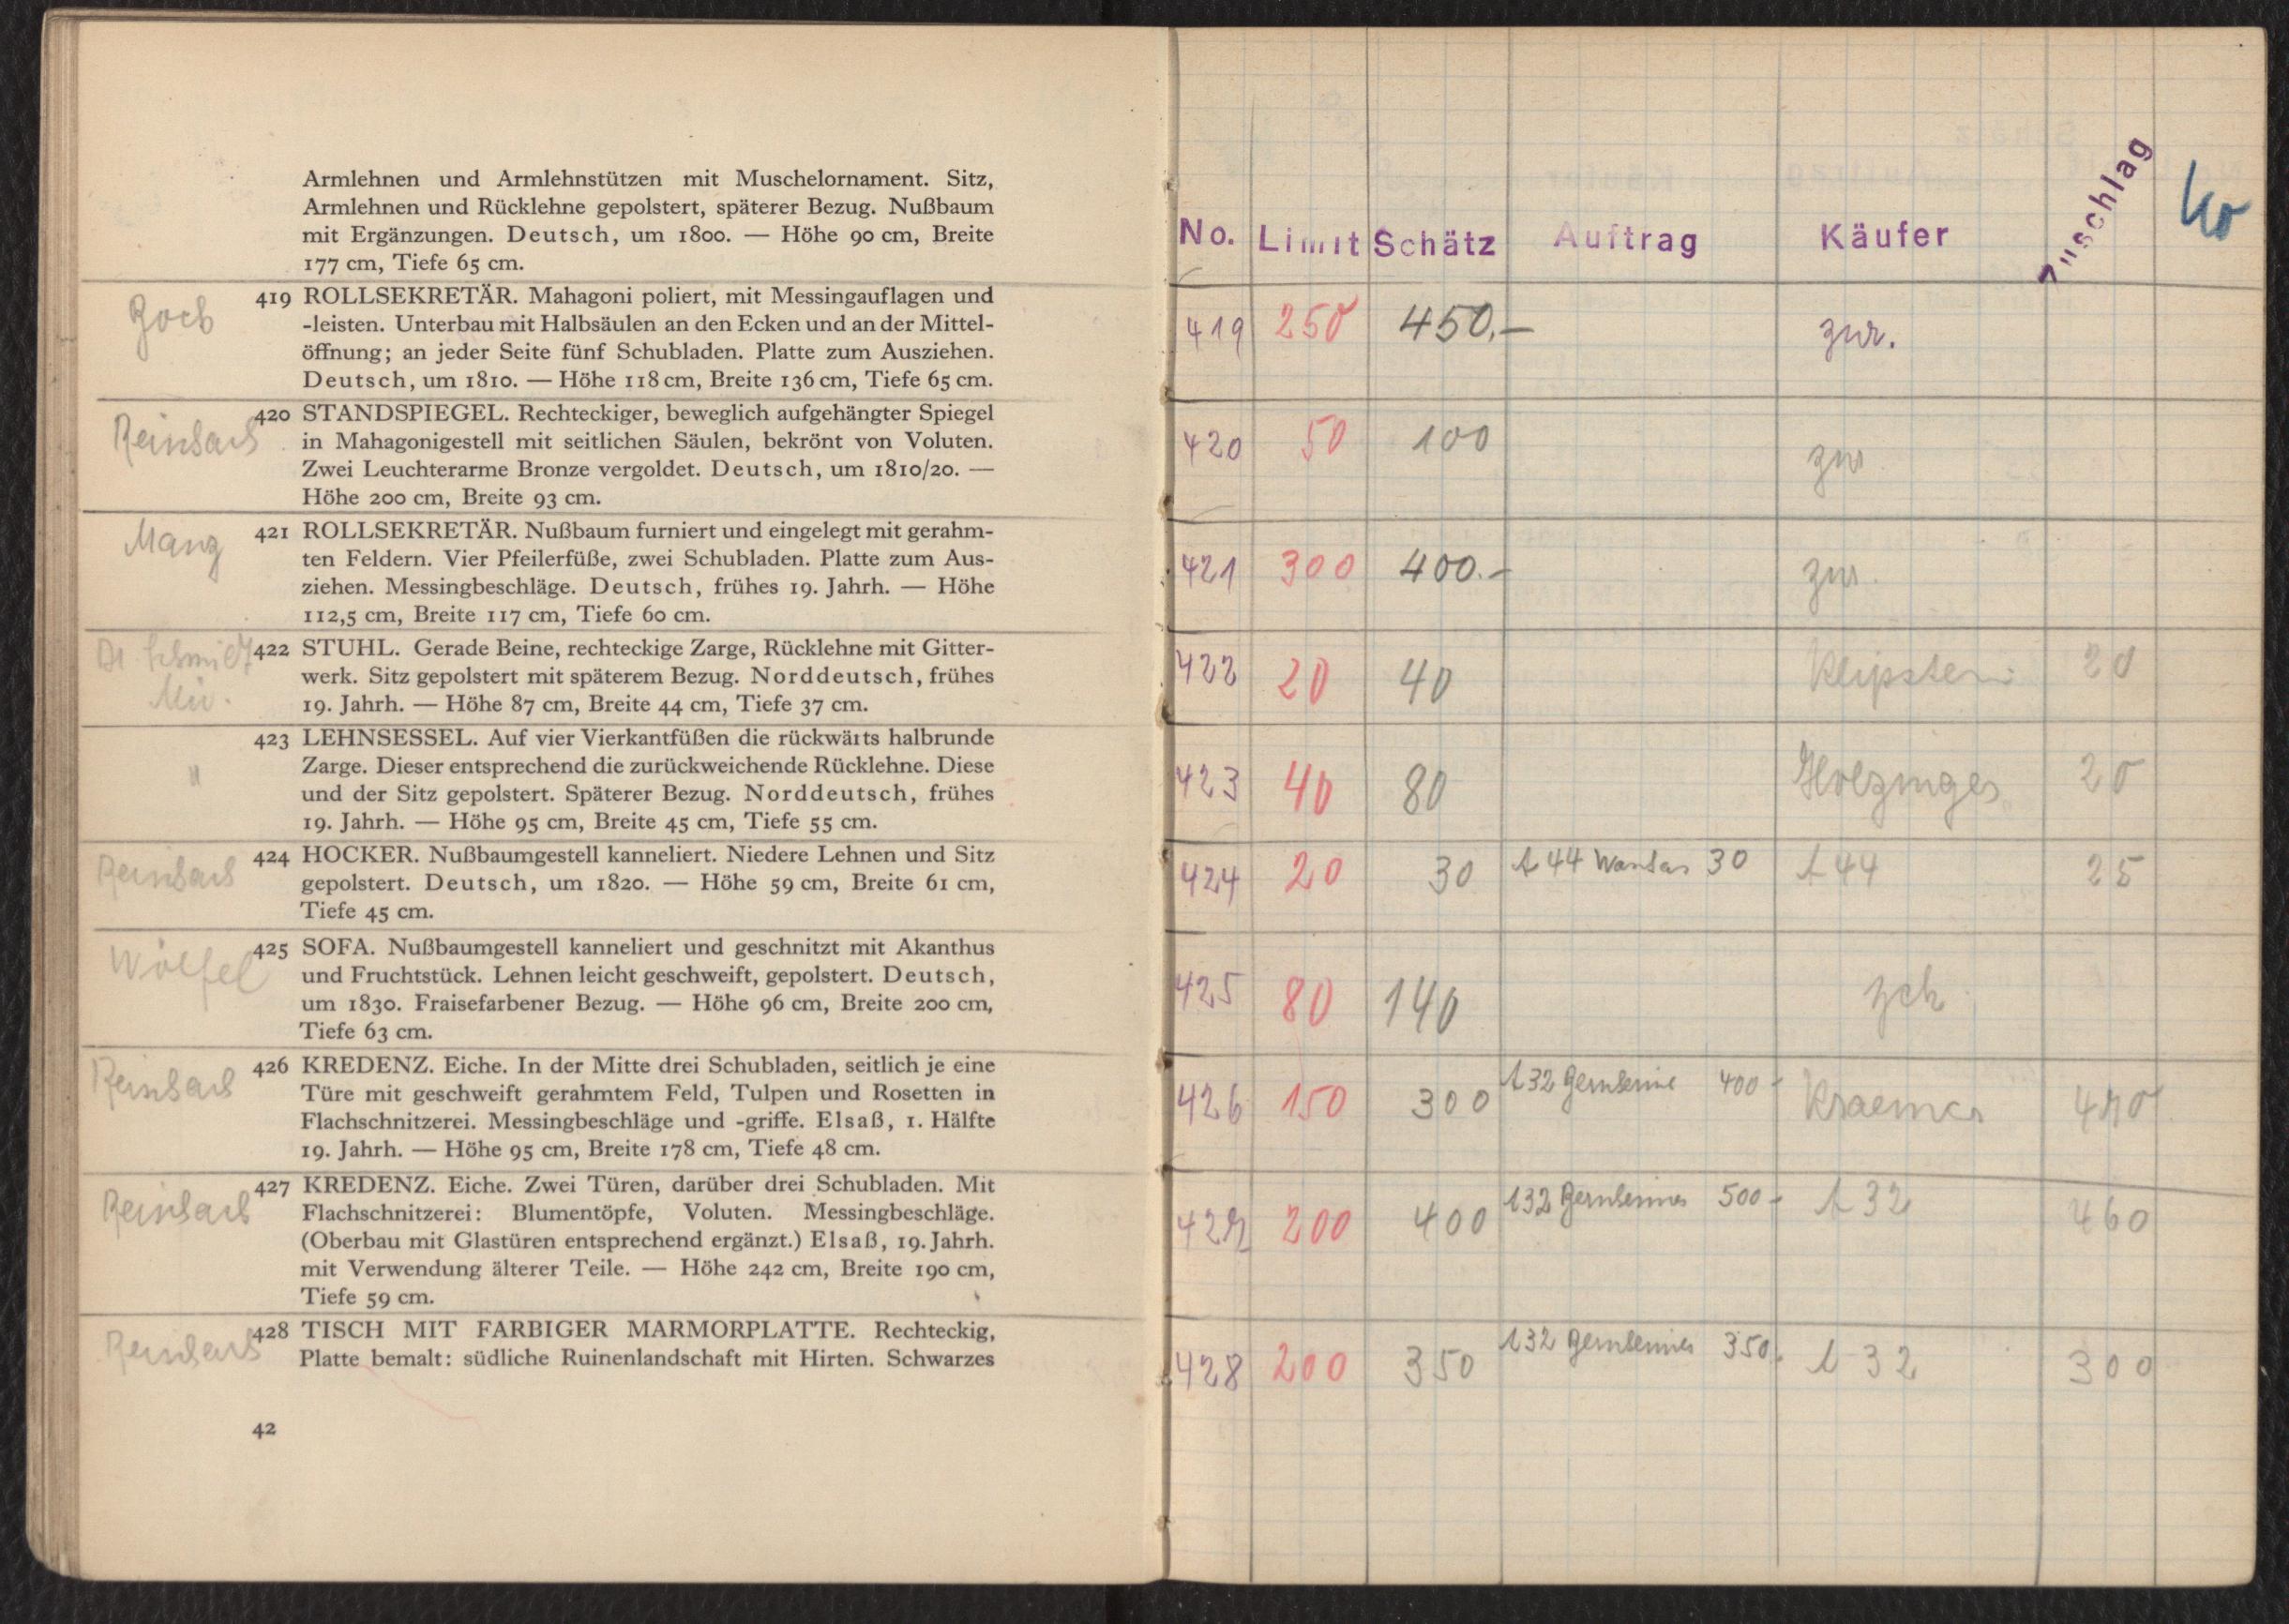 Armlehnen und Armlehnstützen mit Muschelornament. Sitz,
Armlehnen und Rücklehne gepolstert, späterer Bezug. Nußbaum
mit Ergänzungen. Deutsch, um 1800. — Höhe 90 cm, Breite
177 cm, Tiefe 65 cm.
419 ROLLSEKRETÄR. Mahagoni poliert, mit Messingauflagen und
-leisten. Unterbau mit Halbsäulen an den Ecken und an der Mittel-
öffnung; an jeder Seite fünf Schubladen. Platte zum Ausziehen.
Deutsch, um 1810. — Höhe 118 cm, Breite 136 cm, Tiefe 65 cm.
420 STANDSPIEGEL. Rechteckiger, beweglich aufgehängter Spiegel
in Mahagonigestell mit seitlichen Säulen, bekrönt von Voluten.
Zwei Leuchterarme Bronze vergoldet. Deutsch, um 1810/20. —
Höhe 200 cm, Breite 93 cm.
Manz
421 ROLLSEKRETÄR. Nußbaum furniert und eingelegt mit gerahm-
ten Feldern. Vier Pfeilerfüße, zwei Schubladen. Platte zum Aus-
ziehen. Messingbeschläge. Deutsch, frühes 19. Jahrh. — Höhe
112,5 cm, Breite 117 cm, Tiefe 60 cm.
Dr Schmidt
Mü.
422 STUHL. Gerade Beine, rechteckige Zarge, Rücklehne mit Gitter-
werk. Sitz gepolstert mit späterem Bezug. Norddeutsch, frühes
19. Jahrh. — Höhe 87 cm, Breite 44 cm, Tiefe 37 cm.
"
423 LEHNSESSEL. Auf vier Vierkantfüßen die rückwärts halbrunde
Zarge. Dieser entsprechend die zurückweichende Rücklehne. Diese
und der Sitz gepolstert. Späterer Bezug. Norddeutsch, frühes
19. Jahrh. — Höhe 95 cm, Breite 45 cm, Tiefe 55 cm.
424 HOCKER. Nußbaumgestell kanneliert. Niedere Lehnen und Sitz
gepolstert. Deutsch, um 1820. — Höhe 59 cm, Breite 61 cm,
Tiefe 45 cm.
Wölfel
425 SOFA. Nußbaumgestell kanneliert und geschnitzt mit Akanthus
und Fruchtstück. Lehnen leicht geschweift, gepolstert. Deutsch,
um 1830. Fraisefarbener Bezug. — Höhe 96 cm, Breite 200 cm,
Tiefe 63 cm.
426 KREDENZ. Eiche. In der Mitte drei Schubladen, seitlich je eine
Türe mit geschweift gerahmtem Feld, Tulpen und Rosetten in
Flachschnitzerei. Messingbeschläge und -griffe. Elsaß, 1. Hälfte
19. Jahrh. — Höhe 95 cm, Breite 178 cm, Tiefe 48 cm.
427 KREDENZ. Eiche. Zwei Türen, darüber drei Schubladen. Mit
Flachschnitzerei: Blumentöpfe, Voluten. Messingbeschläge.
(Oberbau mit Glastüren entsprechend ergänzt.) Elsaß, 19. Jahrh.
mit Verwendung älterer Teile. — Höhe 242 cm, Breite 190 cm,
Tiefe 59 cm.
428 TISCH MIT FARBIGER MARMORPLATTE. Rechteckig,
Platte bemalt: südliche Ruinenlandschaft mit Hirten. Schwarzes
42
No. Limit Schätz Auftrag Käufer
419 250 450.— zur.
420 50 100 zur
421 300 400.- zur.
422 20 40 Klipstein 20
423 40 80 Holzinger 20
424 20 30 A 44 30 A 44 25
425 80 140
426 150 300 A 32 400 - Kraemer
427 200 400 A 32 500 - A 32 460
428 200 350 A 32 350. A 32 300